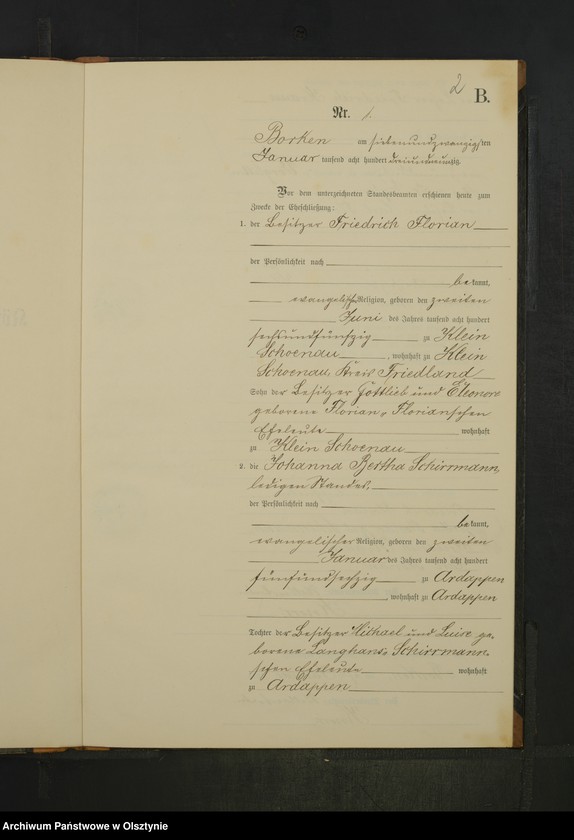 2
B.
Nr. 1.
Borken am siebenundzwanzigsten
Januar tausend acht hundert dreiundneunzig.
Vor dem unterzeichneten Standesbeamten erschienen heute zum
Zwecke der Eheschließung:
1. der Besitzer Friedrich Florian
der Persönlichkeit nach
bekannt,
evangelischer Religion, geboren den zweiten
Juni des Jahres tausend acht hundert
sechsundfünfzig zu Klein
Schoenau, wohnhaft zu Klein
Schoenau, Kreis Friedland
Sohn der Besitzer Gottlieb und Eleonore
geborene Florian, Florianschen
Eheleute wohnhaft
zu Klein Schoenau
2. die Johanna Bertha Schirrmann,
ledigen Standes,
der Persönlichkeit nach
bekannt,
evangelischer Religion, geboren den zweiten
Januar des Jahres tausend acht hundert
fünfundsechzig zu Ardappen
, wohnhaft zu Ardappen
Tochter der Besitzer Michael und Luise ge-
borene Langhans, Schirrmann-
schen Eheleute wohnhaft
zu Ardappen
Archiwum Państwowe w Olsztynie